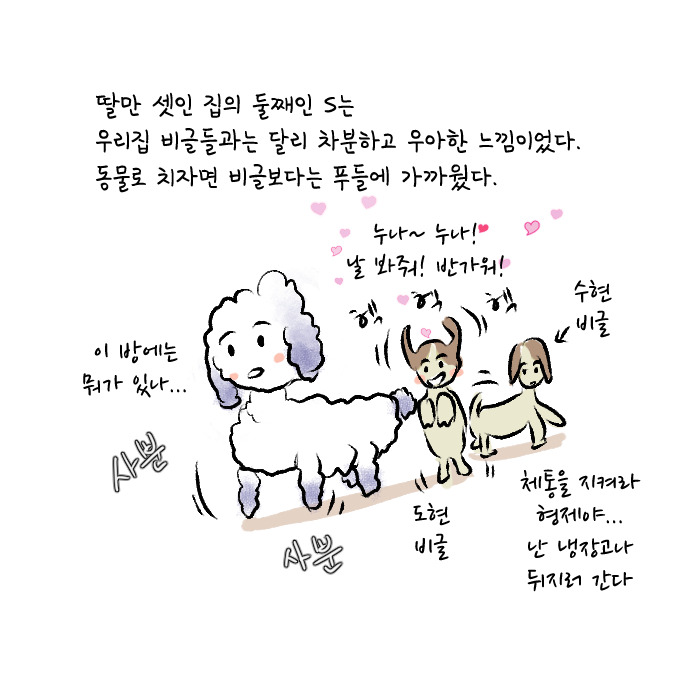 딸만 셋인 집의 둘째인 S는
우리집 비글들과는 달리 차분하고 우아한 느낌이었다.
동물로 치자면 비글보다는 푸들에 가까웠다.
누나~ 누나!
날 봐줘! 반가워!
헥 헉 헥
수현
비글
이 방에는
뭐가 있나...
사뿐
사뿐
도현
비글
체통을 지켜라
형제야...
난 냉장고나
뒤지러 간다